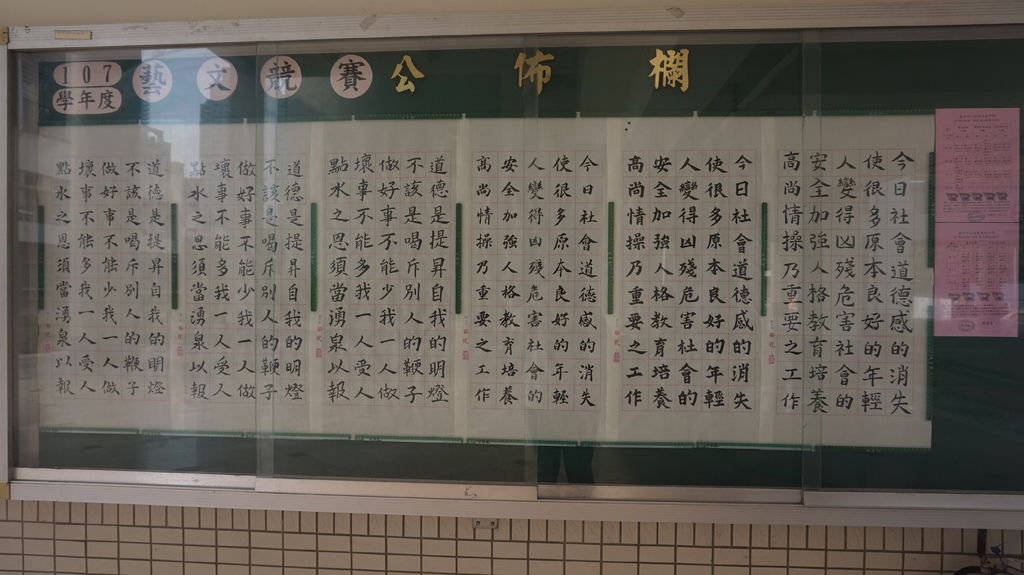 107
學年度
藝文競賽
公佈欄
今日社會道德感的消失
使很多原本良好的年輕
人變得凶殘危害社會的
安全加強人格教育培養
高尚情操乃重要之工作
今日社會道德感的消失
使很多原本良好的年輕
人變得凶殘危害社會的
安全加強人格教育培養
高尚情操乃重要之工作
今日社會道德感的消失
使很多原本良好的年輕
人變得凶殘危害社會的
安全加強人格教育培養
高尚情操乃重要之工作
道德是提昇自我的明燈
不該是喝斥別人的鞭子
做好事不能少我一人做
壞事不能多我一人受人
點水之恩須當湧泉以報
道德是提昇自我的明燈
不該是喝斥別人的鞭子
做好事不能少我一人做
壞事不能多我一人受人
點水之恩須當湧泉以報
道德是提昇自我的明燈
不該是喝斥別人的鞭子
做好事不能少我一人做
壞事不能多我一人受人
點水之恩須當湧泉以報